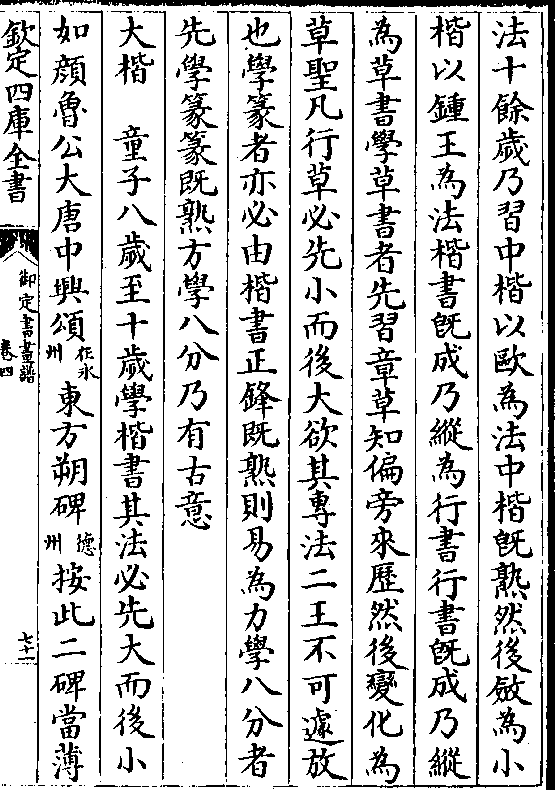 法十餘歲乃習中楷以歐為法中楷旣熟然後斂為小
楷以鍾王為法楷書旣成乃縱為行書行書旣成乃縱
為草書學草書者先習章草知偏旁來歷然後變化為
草聖凡行草必先小而後大欲其專法二王不可遽放
也學篆者亦必由楷書正鋒既熟則易為力學八分者
先學篆篆既熟方學八分乃有古意
大楷　童子八歲至十歲學楷書其法必先大而後小
如顔魯公大唐中興頌在永州東方朔碑德州按此二碑當薄
欽定四庫全書
御定書畫譜
卷四
七十一